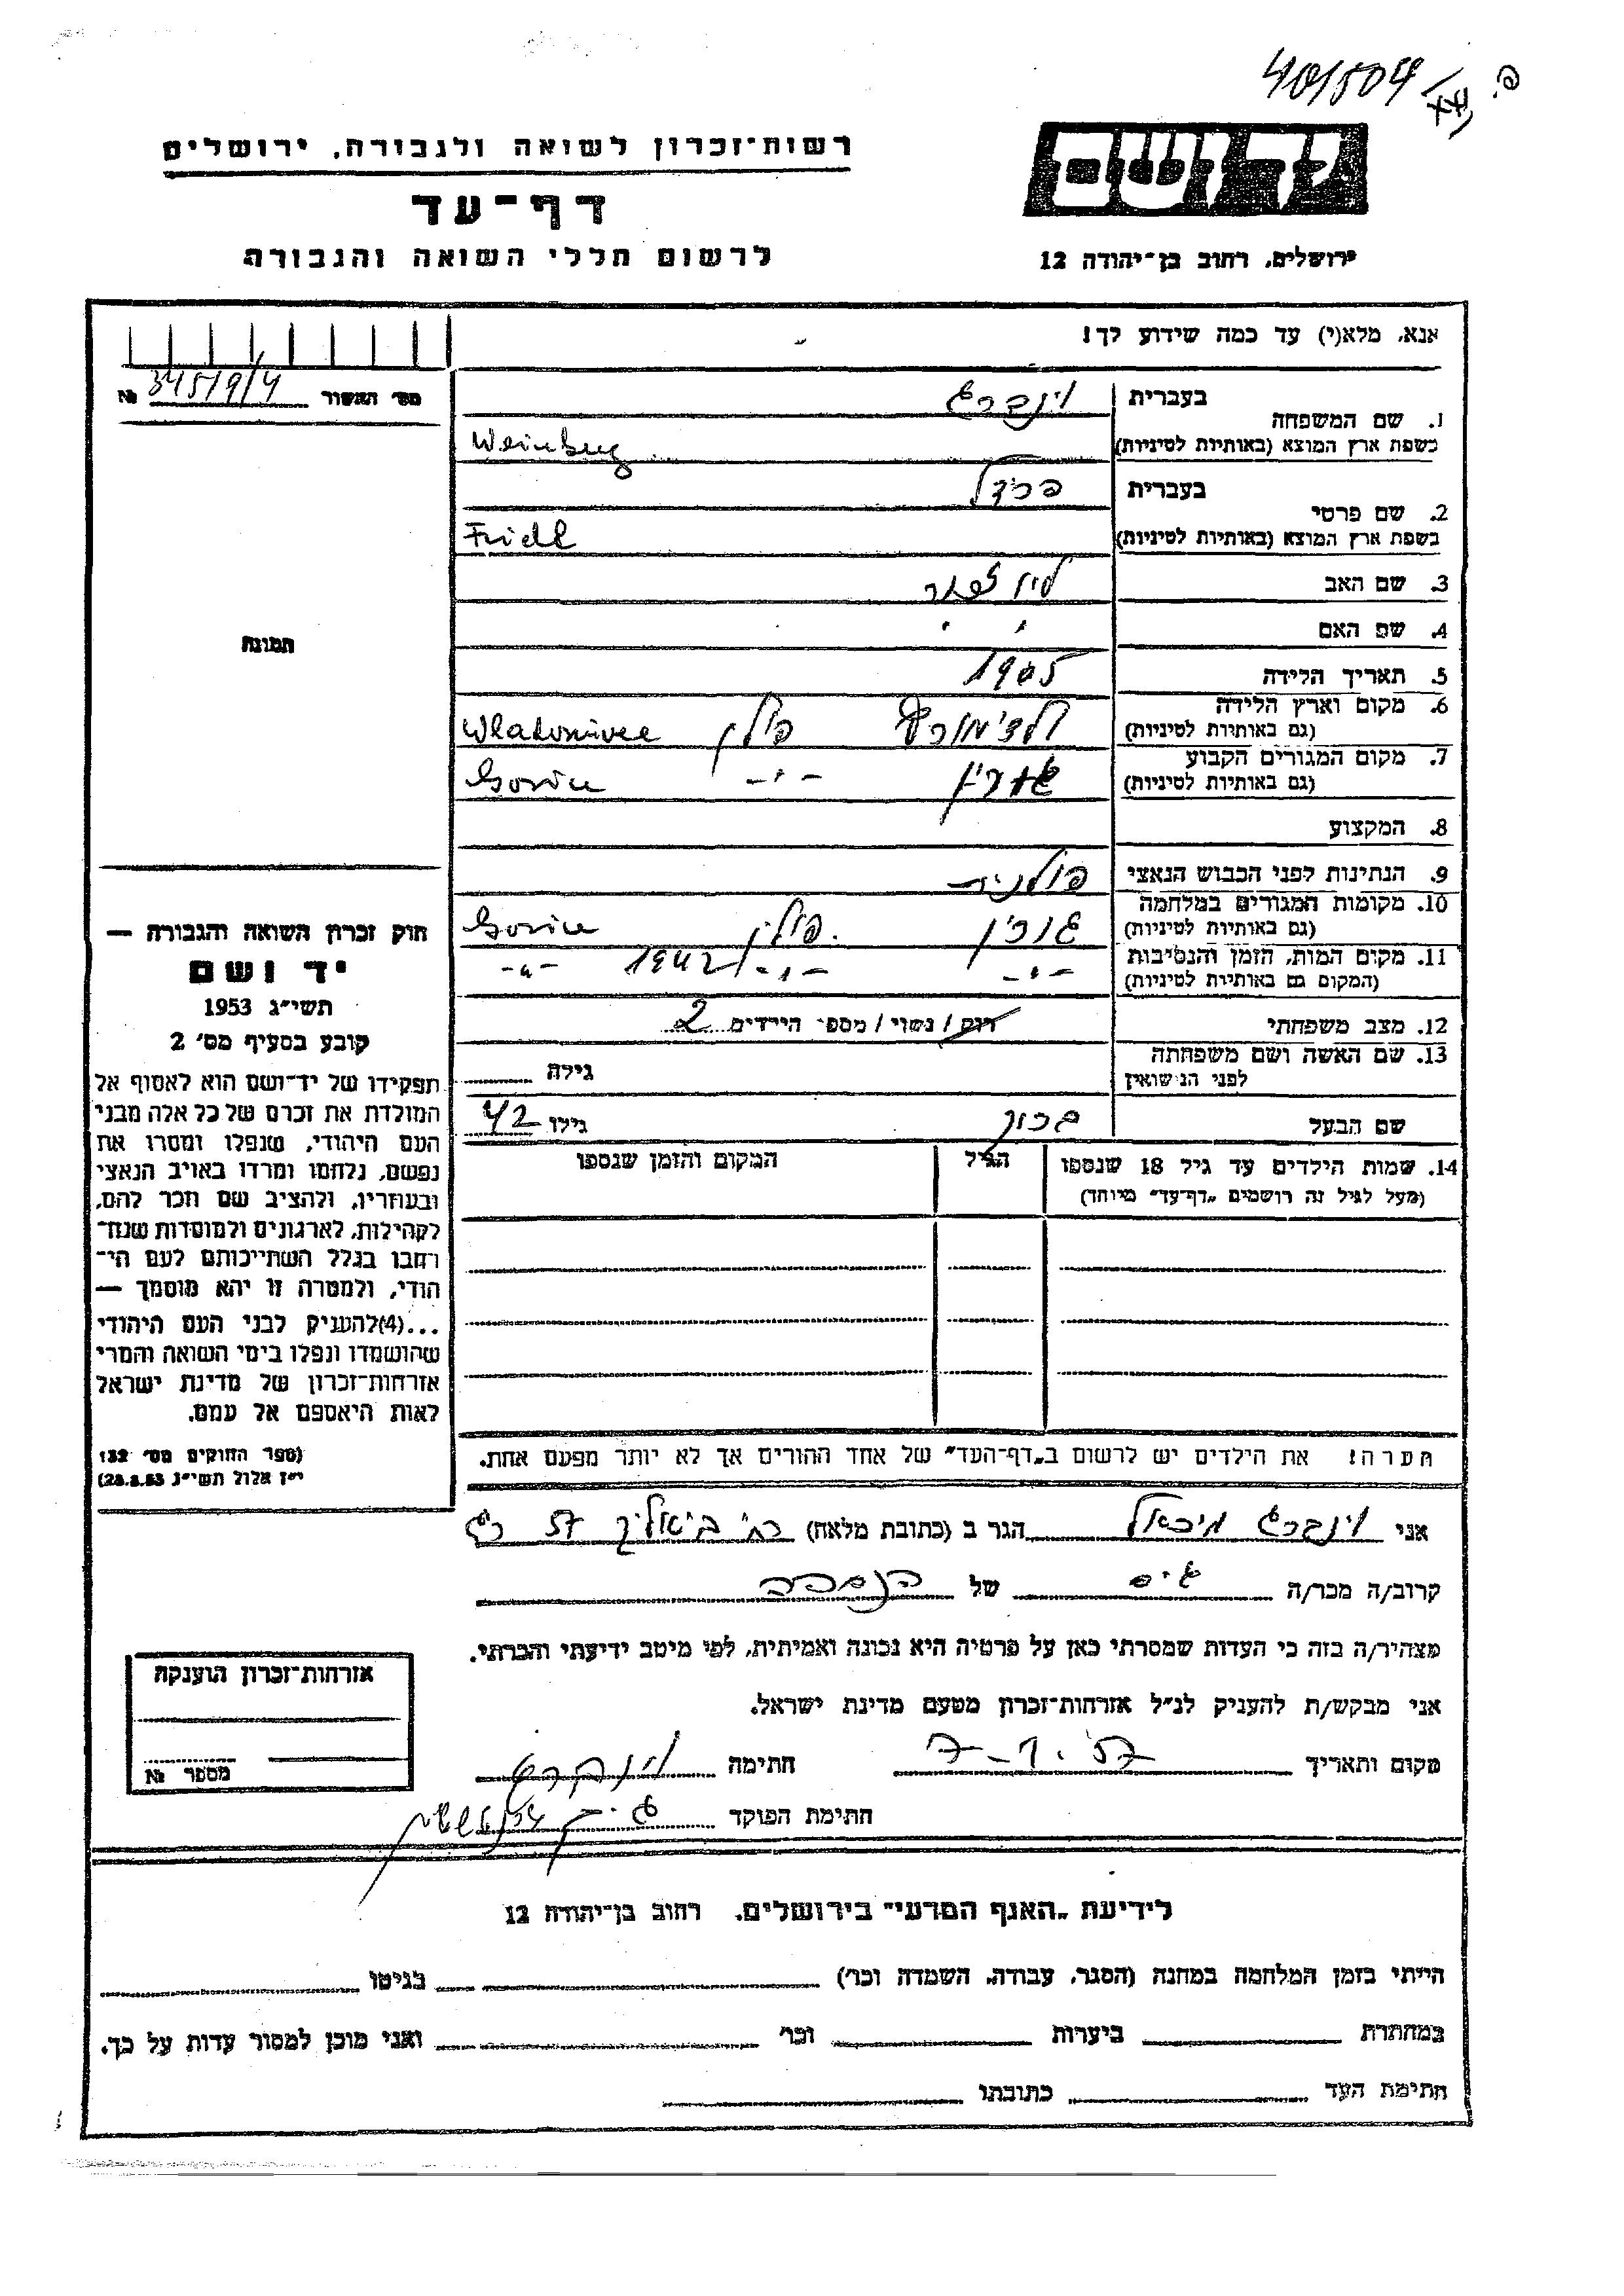 401504
רשות-זכרון לשואה ולגבורה, ירושלים
דף-עד
לרשום חללי השואה והגבורה
ירושלים, רחוב בן-יהודה 12
אנא, מלא(י) עד כמה שידוע לך!
מס׳ האשור 345/9/4 №
1. שם המשפחה
בעברית וינברג
בשפת ארץ המוצא (באותיות לטיניות) Weinberg
2. שם פרטי
בעברית פרידל
בשפת ארץ המוצא (באותיות לטיניות) Fridl
3. שם האב
4. שם האם
5. תאריך הלידה 1905
6. מקום וארץ הלידה פולין
(גם באותיות לטיניות)
7. מקום המגורים הקבוע -"-
(גם באותיות לטיניות)
8. המקצוע
9. הנתינות לפני הכבוש הנאצי פולנית
10. מקומות המגורים במלחמה פולין
(גם באותיות לטיניות)
11. מקום המות, הזמן והנסיבות -"- -"- 1942 -"-
(המקום גם באותיות לטיניות)
12. מצב משפחתי רווק/נשוי/מספר הילדים 2
13. שם האשה ושם משפחתה
לפני הנישואין גילה
שם הבעל גילו 42
14. שמות הילדים עד גיל 18 שנספו הגיל המקום והזמן שנספו
(מעל לגיל זה רושמים „דף-עד״ מיוחד)
תמונה
חוק זכרון השואה והגבורה —
יד ושם
תשי״ג 1953
קובע בסעיף מס׳ 2
תפקידו של יד-ושם הוא לאסוף אל
המולדת את זכרם של כל אלה מבני
העם היהודי, שנפלו ומסרו את
נפשם, נלחמו ומרדו באויב הנאצי
ובעוזריו, ולהציב שם וזכר להם,
לקהילות, לארגונים ולמוסדות שנח-
רבו בגלל השתייכותם לעם הי-
הודי, ולמטרה זו יהא מוסמך —
...(4)להעניק לבני העם היהודי
שהושמדו ונפלו בימי השואה והמרי
אזרחות-זכרון של מדינת ישראל
לאות היאספם אל עמם.
(ספר החוקים מס׳ 132
י״ז אלול תשי״ג 28.8.53)
הערה! את הילדים יש לרשום ב„דף-העד״ של אחד ההורים אך לא יותר מפעם אחת.
אני וינברג מיכאל הגר ב (כתובת מלאה) רח׳ ביאליק 57 רג
קרוב/ה מכר/ה גיס של הנספה
מצהיר/ה בזה כי העדות שמסרתי כאן על פרטיה היא נכונה ואמיתית, לפי מיטב ידיעתי והכרתי.
אני מבקש/ת להעניק לנ״ל אזרחות-זכרון מטעם מדינת ישראל.
מקום ותאריך 7-1.57 חתימה וינברג
חתימת הפוקד
אזרחות-זכרון הוענקה
מספר №
לידיעת „האגף המדעי״ בירושלים, רחוב בן-יהודה 12
הייתי בזמן המלחמה במחנה (הסגר, עבודה, השמדה וכו׳) בגיטו
במחתרת ביערות וכו׳ ואני מוכן למסור עדות על כך.
חתימת העד כתובתו